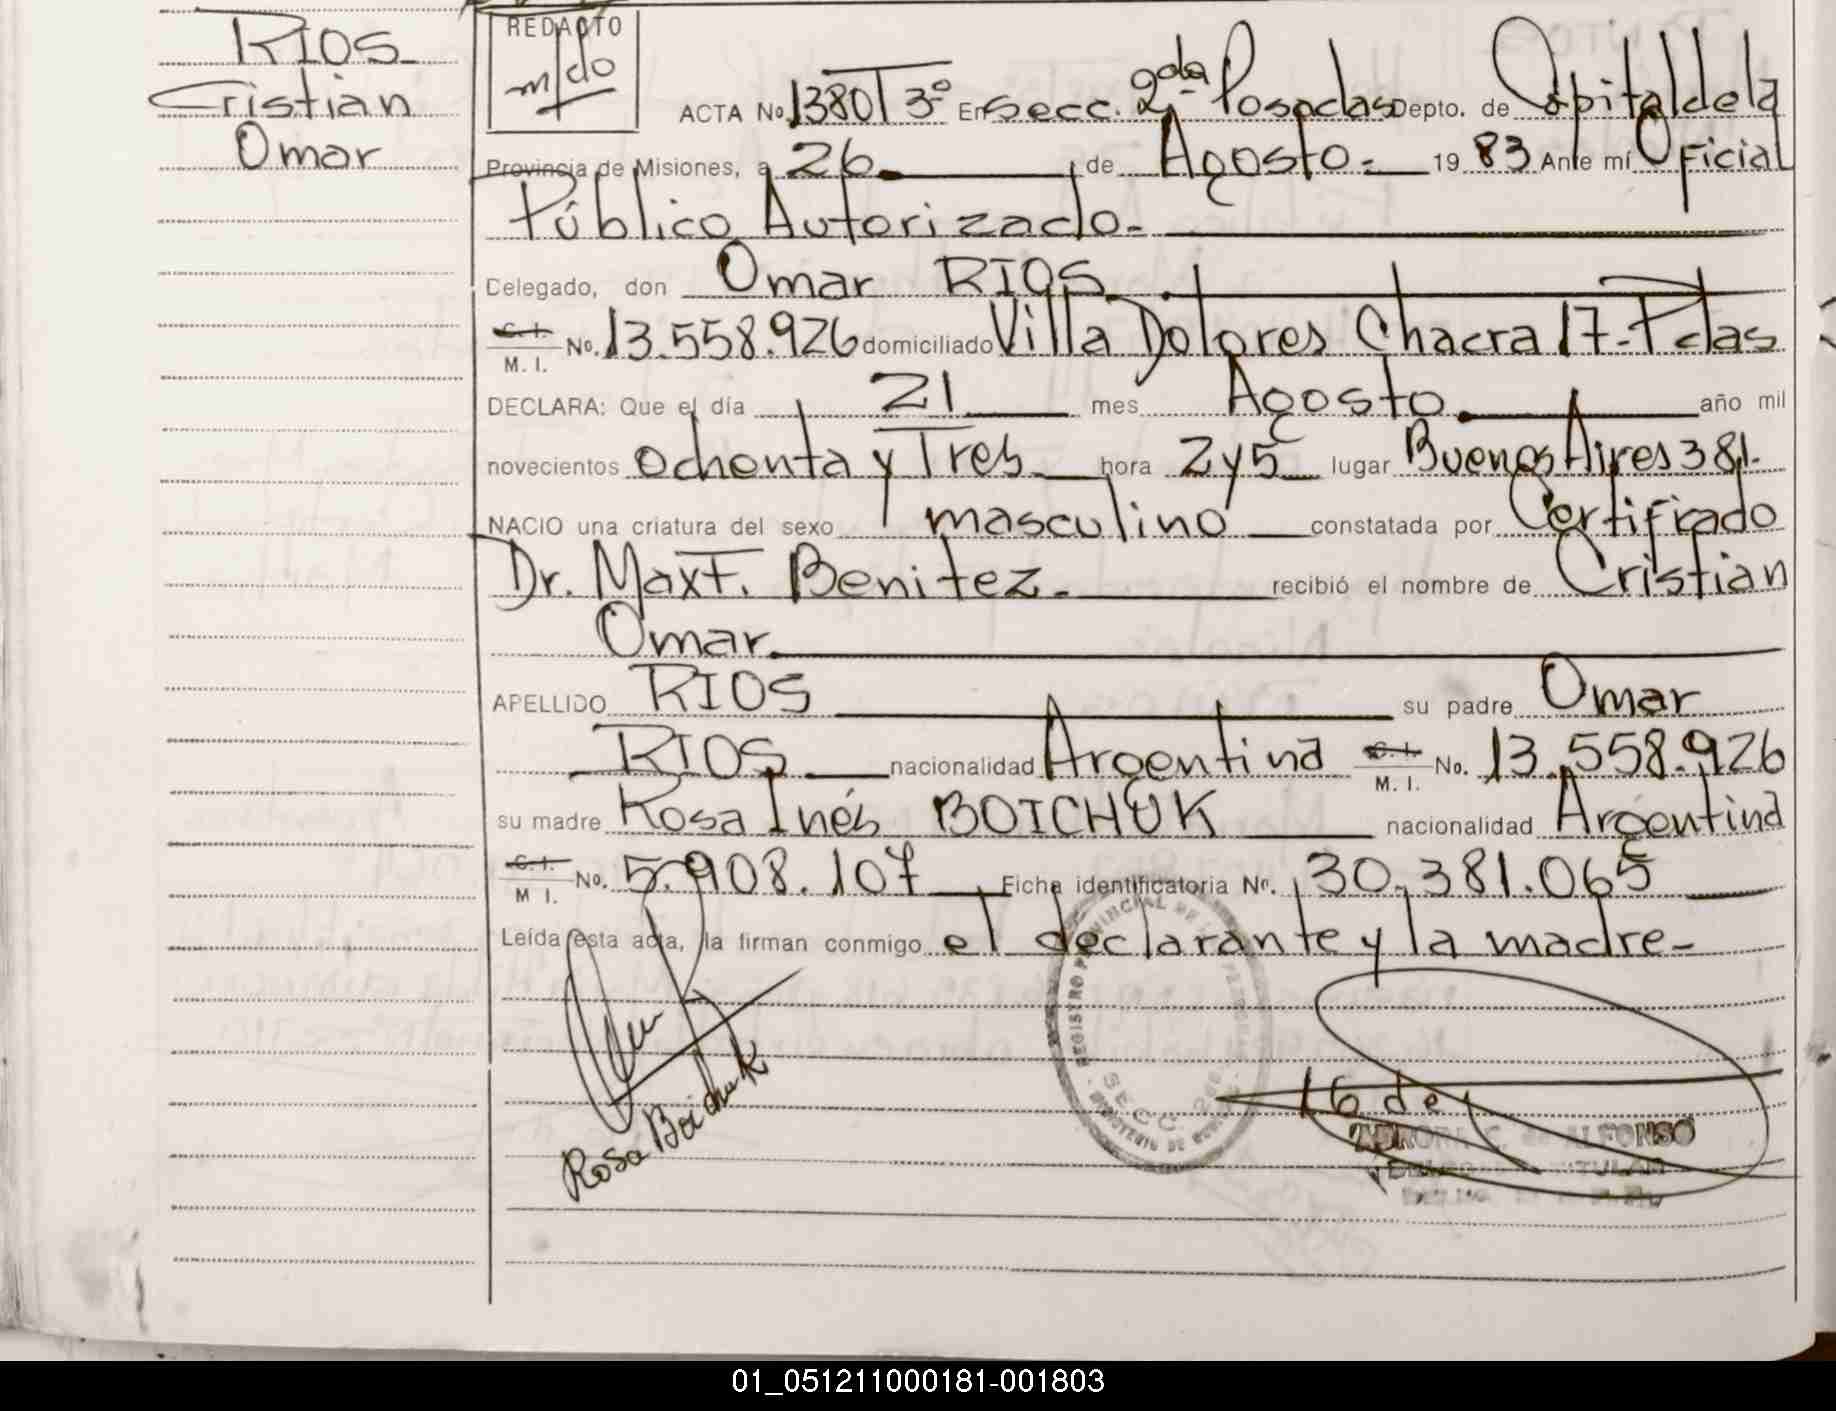 RIOS
Cristian
Omar
REDACTO
m/do
ACTA No. 1380 T 3º En Secc. 2da Posadas Depto. de Capital de la
Provincia de Misiones, a 26 de Agosto.- 19 83 Ante mí Oficial
Público Autorizado.-
Celegado, don Omar RIOS
C. I. No. 13.558.926 domiciliado Villa Dolores Chacra 17-Pdas
M. I.
DECLARA: Que el día 21 mes Agosto año mil
novecientos ochenta y Tres hora 2 y 5 lugar Buenos Aires 381.
NACIO una criatura del sexo masculino constatada por Certificado
Dr. Max T. Benitez.- recibió el nombre de Cristian
Omar
APELLIDO RIOS su padre Omar
RIOS nacionalidad Argentina C. I. No. 13.558.926
M. I.
su madre Rosa Inés BOICHUK nacionalidad Argentina
C. I. No. 5.908.107 Ficha identificatoria Nº. 30.381.065
M I.
Leída esta acta, la firman conmigo el declarante y la madre-
REGISTRO PROVINCIAL DE LAS PERSONAS
SECC. 2da
Rosa Boichuk
16 de
C. de ALFONSO
TITULAR
01_051211000181-001803